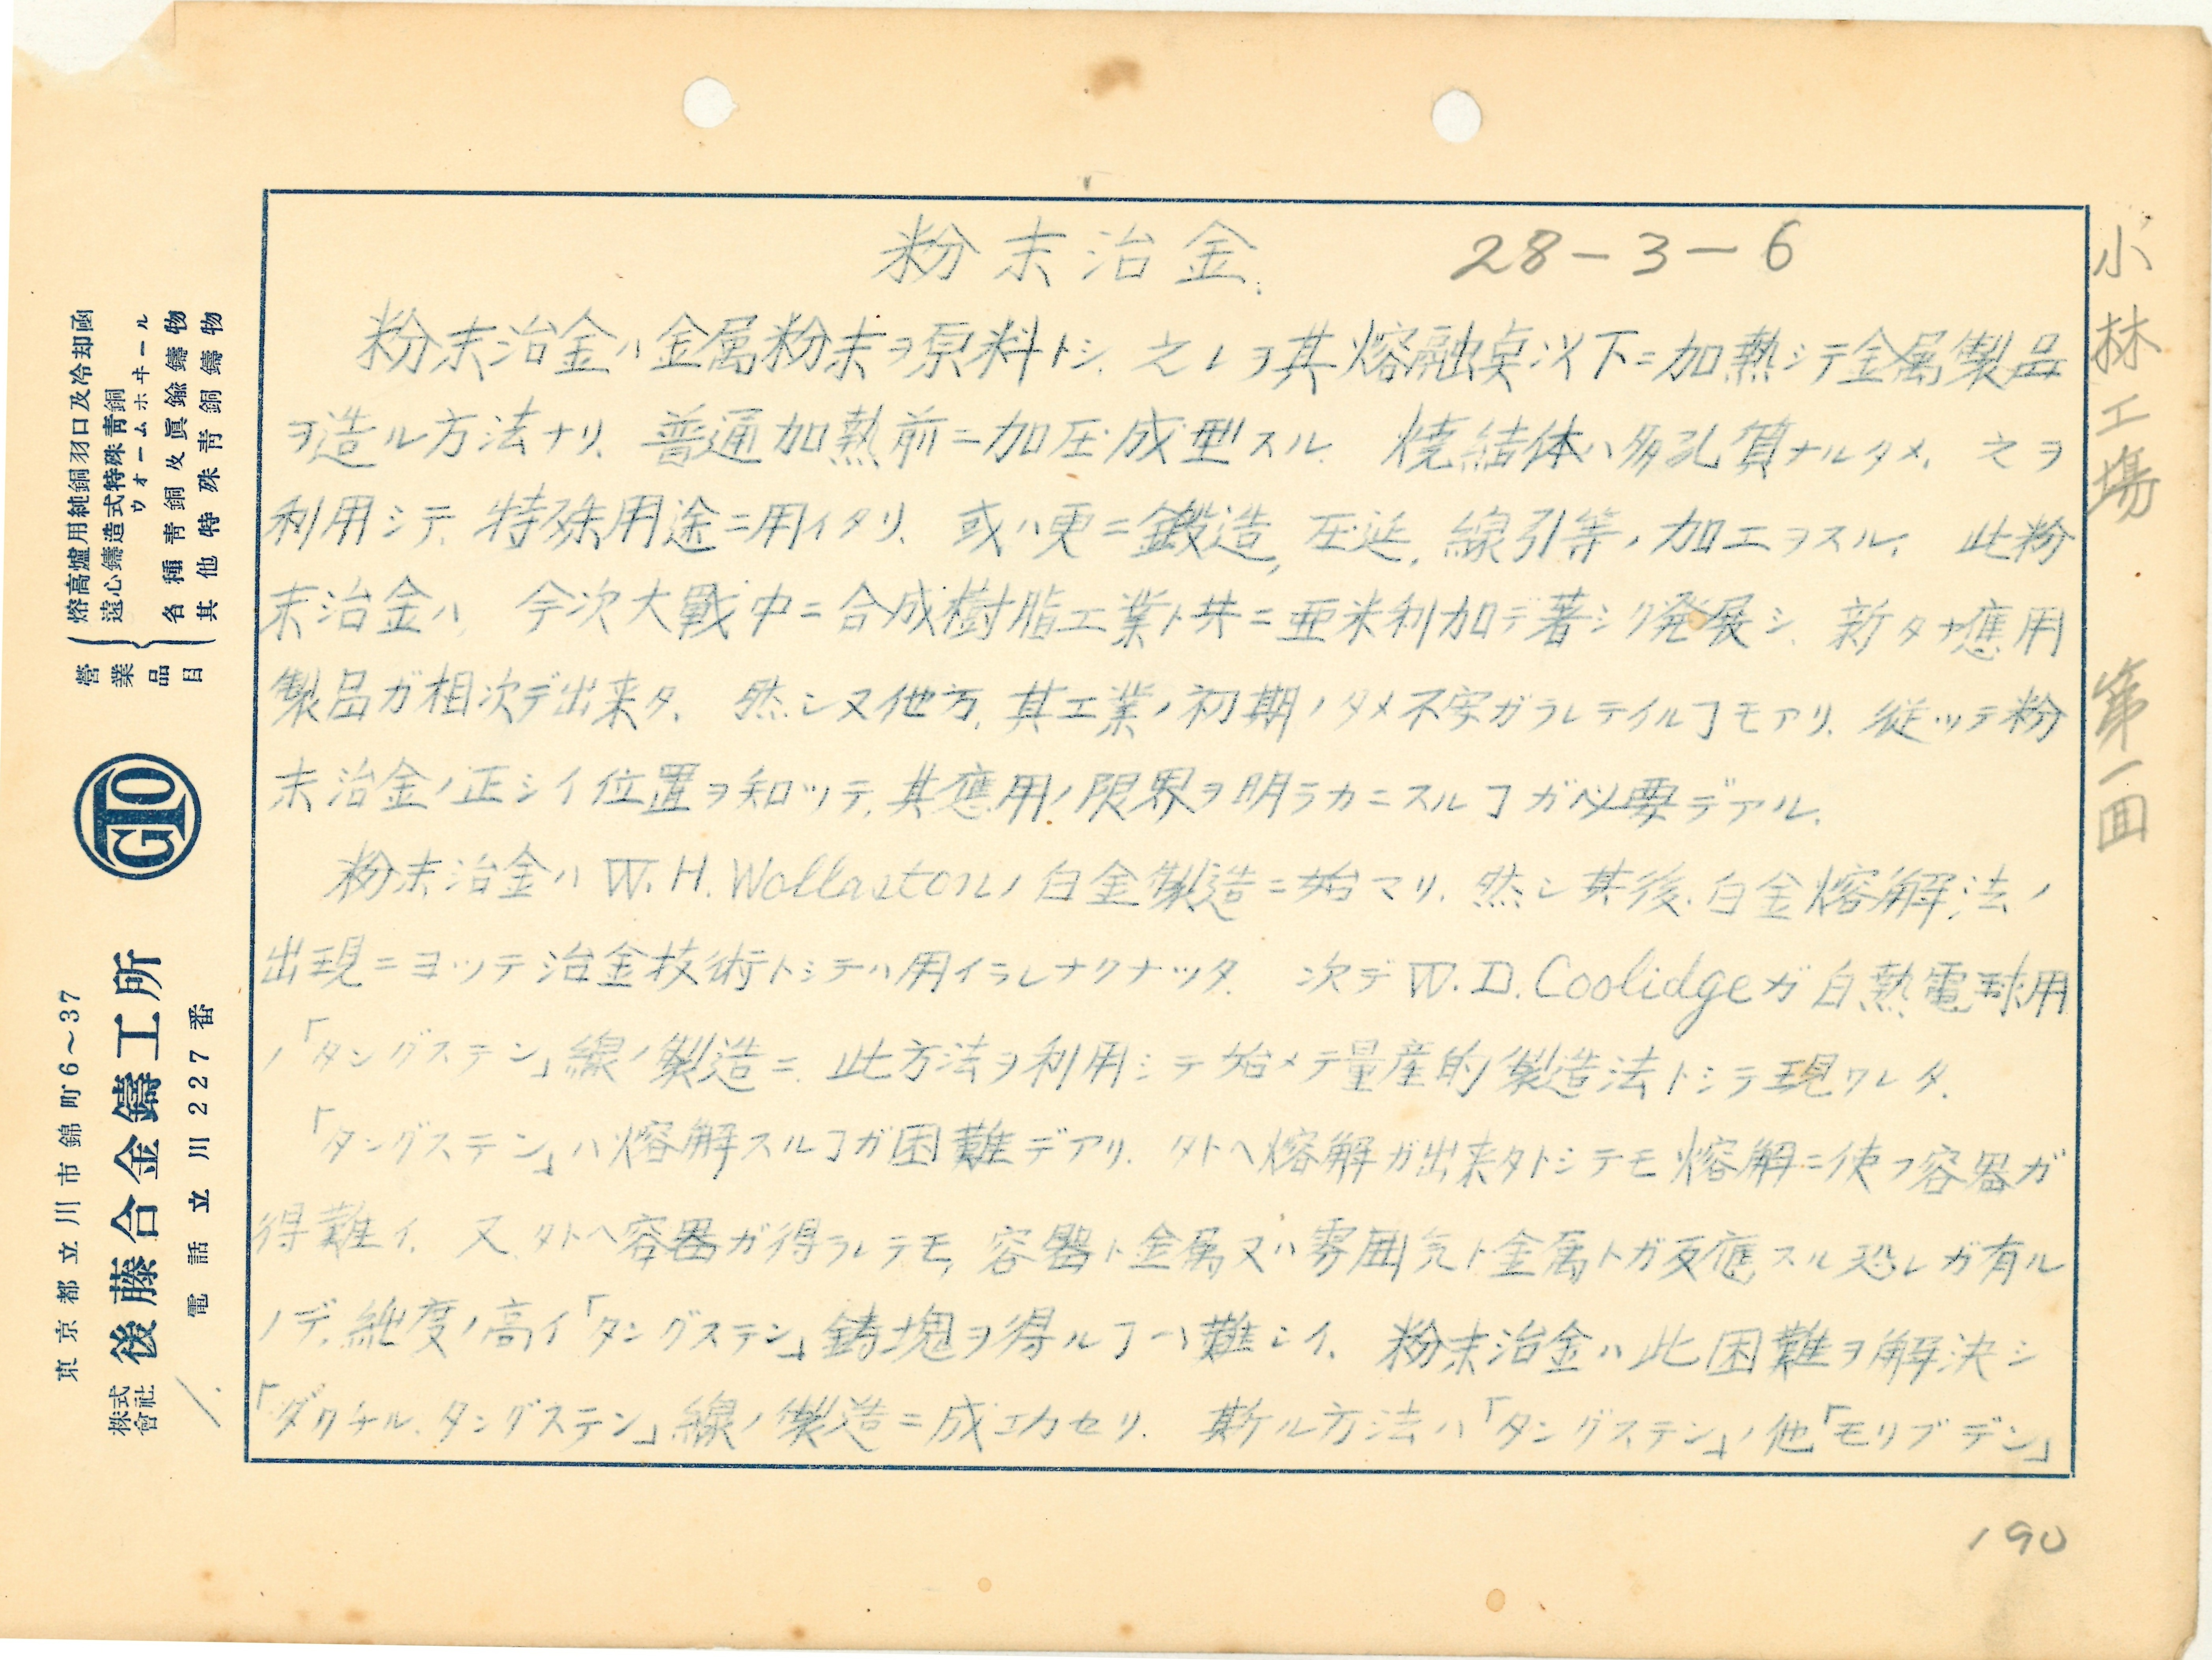 粉末冶金. 28-3-6
粉末冶金ハ金属粉末ヲ原料トシ、之レヲ其熔融点以下ニ加熱シテ金属製品
ヲ造ル方法ナリ、普通加熱前ニ加圧成型スル. 焼結体ハ多孔質ナルタメ、之ヲ
利用シテ、特殊用途ニ用イタリ、或ハ更ニ鍛造, 圧延, 線引等ノ加工ヲスル. 此粉
末冶金ハ、今次大戰中ニ合成樹脂工業ト共ニ亜米利加デ著シク発展シ、新タナ應用
製品ガ相次デ出来タ、然シ又他方、其工業ノ初期ノタメ不安ガラレテイルヿモアリ、従ッテ粉
末冶金ノ正シイ位置ヲ知ッテ、其應用ノ限界ヲ明ラカニスルヿガ必要デアル、
粉末冶金ハ W. H. Wollastonノ白金製造ニ始マリ、然シ其後、白金熔解法ノ
出現ニヨッテ冶金技術トシテハ用イラレナクナッタ. 次デ W. D. Coolidgeガ白熱電球用
ノ「タングステン」線ノ製造ニ、此方法ヲ利用シテ始メテ量産的製造法トシテ現ワレタ.
「タングステン」ハ熔解スルヿガ困難デアリ、タトヘ熔解ガ出来タトシテモ熔解ニ使フ容器ガ
得難イ、又、タトヘ容器ガ得ラレテモ、容器ト金属又ハ雰囲気ト金属トガ反應スル恐レガ有ル
ノデ、純度ノ高イ「タングステン」鋳塊ヲ得ルヿハ難シイ、粉末冶金ハ此困難ヲ解決シ
「ダクチル、タングステン」線ノ製造ニ成功セリ. 斯ル方法ハ「タングステン」ノ他「モリブデン」
小林工場 第一回
190
營業品目
熔高爐用純銅羽口及冷却函
遠心鑄造式特殊青銅ウオームホヰール
各種青銅及眞鍮鑄物
其他特殊青銅鑄物
GTO
東京都立川市錦町6～37
株式會社 後藤合金鑄工所
電話立川227番
1.